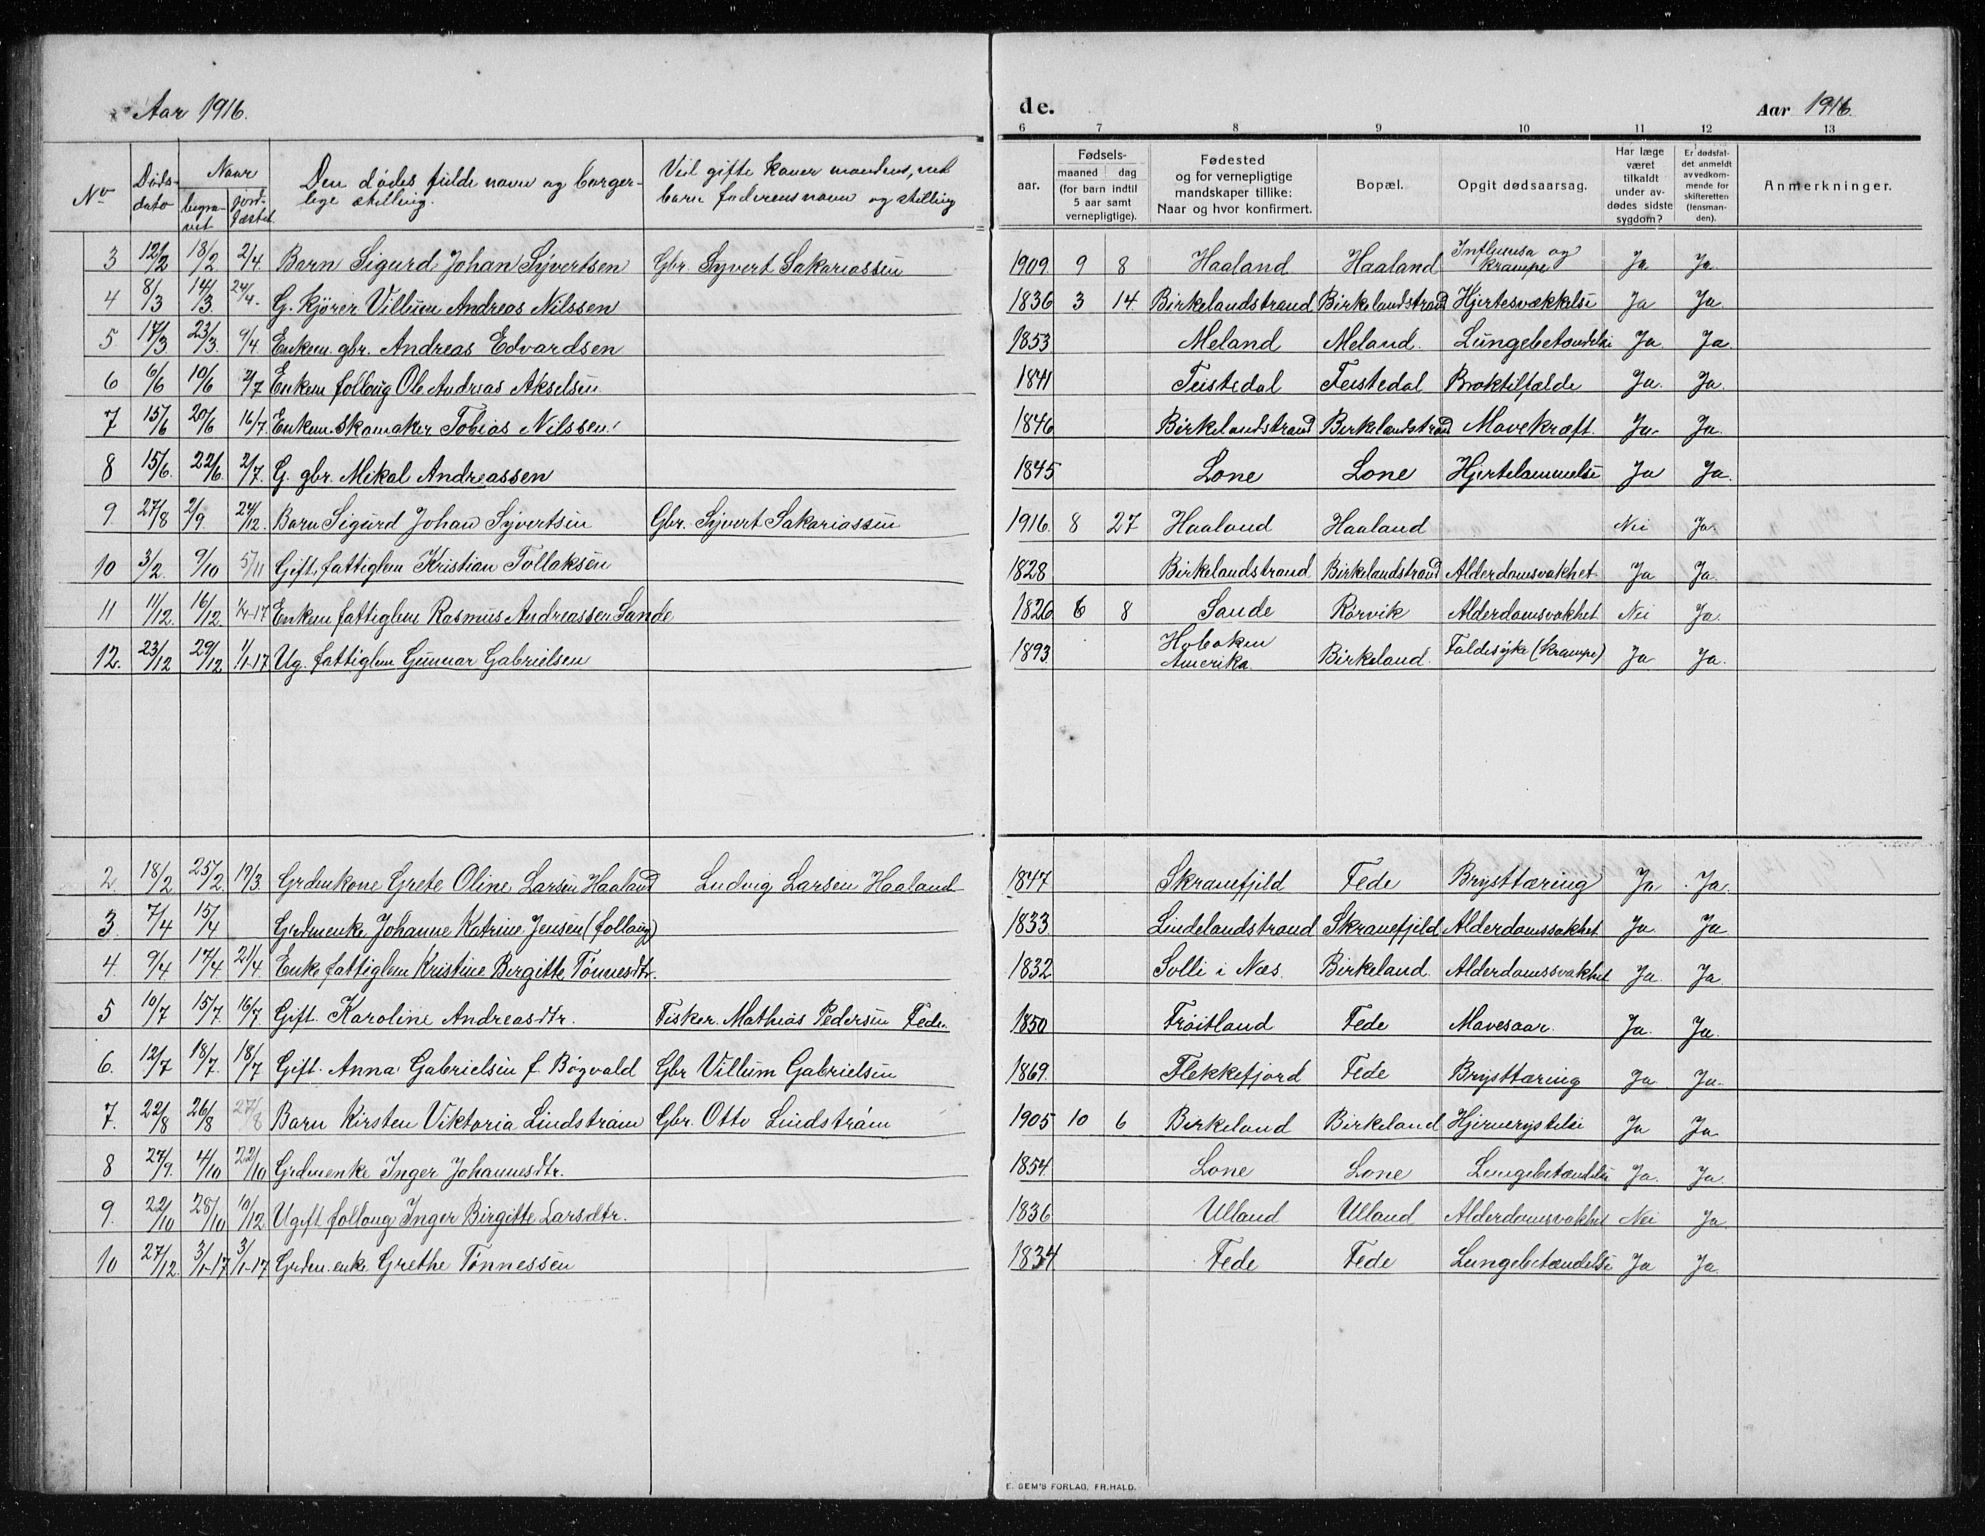 Aar 1916.
de. Aar 1916
6 7 8 9 10 11 12 13
No Døds-dato Naar begra-vet jord-fæstet Den dødes fulde navn og borger-lige stilling. Ved gifte koner mandens, ved barn faderens navn og stilling
aar. Fødsels- maaned dag (for barn indtil 5 aar samt vernepligtige). Fødested og for vernepligtige mandskaper tillike: Naar og hvor konfirmert. Bopæl. Opgit dødsaarsag. Har læge været tilkaldt under av-dødes sidste sygdom? Er dødsfal-det anmeldt av vedkom-mende for skifteretten (lensman-den). Anmerkninger.
3 12/2 18/2 2/4. Barn Sigurd Johan Syvertsen Gbr. Syvert Sakariassen 1909. 9 8 Haaland Haaland Influensa og krampe Ja Ja.
4 8/3 14/3. 24/4. G. Kjører Villum Andreas Nilssen 1836 3 14. Birkelandstrand Birkelandstrand Hjertesvækkelse Ja Ja.
5 17/3 23/3. 9/4 Enkem. gbr. Andreas Edvardsen 1853 Meland Meland. Lungebetændelse Ja. Ja
6 6/6 10/6 2/7 Enkem follaug Ole Andreas Akselsen 1841 Feistedal Feistedal Broktilfælde Ja. Ja.
7 15/6 20/6 16/7. Enkem. skomaker Tobias Nilssen 1846 Birkelandstrand Birkelandstrand Mavekræft. Ja. Ja.
8 15/6. 22/6. 2/7. G. gbr. Mikal Andreassen 1845 Lone Lone Hjertelammelse Ja Ja.
9. 27/8 2/9 24/12. Barn Sigurd Johan Syvertsen Gbr. Syvert Sakariassen 1916. 8 27 Haaland Haaland Nei Ja.
10 3/2. 9/10 5/11 Gift. fattiglem Kristian Tollaksen 1828 Birkelandstrand Birkelandstrand Alderdomsvakhet Ja Ja.
11 11/12. 16/12. 1/4-17 Enkem fattiglem Rasmus Andreassen Sande 1826 6 8 Sande Rørvik Alderdomsvakhet Nei Ja.
12. 23/12 29/12 1/1-17 Ug. fattiglem Gunnar Gabrielsen 1893. Hoboken Amerika Birkeland. Faldesyke (Krampe) Ja Ja.
2 18/2 25/2. 19/3. Grdmkone Grete Oline Larsen Haaland Ludvig Larsen Haaland 1847 Skranefjeld Fede Brysttæring Ja. Ja.
3. 7/4 15/4 Grdmenke Johanne Katrine Jensen (follaug) 1833 Lindelandstrand Skranefjeld Alderdomssvakhet Ja. Ja
4. 9/4 17/4 21/4 Enke fattiglem Kristine Bergitte Tønnesdtr. 1832 Solli i Næs. Birkeland. Alderdomssvakhet Ja. Ja.
5 10/7 15/7. 16/7. Gift. Karoline Andreasdtr. Fisker. Mathias Pedersen Fede. 1850 Frøitland Fede Mavesaar. Ja. Ja.
6. 12/7 18/7. 18/7 Gift. Anna Gabrielsen f. Bøgvald Gbr Villum Gabrielsen 1869. Flekkefjord Fede Brysttæring Ja. Ja.
7. 22/8 26/8 27/8 Barn Kirsten Viktoria Lindstrøm Gbr. Otto Lindstrøm 1905 10 6 Birkeland Birkeland Hjernerystelse Ja Ja.
8 27/9. 4/10 22/10 Grdmenke Inger Johannesdtr. 1854. Lone Lone Lungebetændelse Ja. Ja.
9. 22/10 28/10 10/12 Ugift follaug Inger Birgitte Larsdtr. 1836 Ulland Ulland Alderdomsvakhet Nei Ja
10 27/12. 3/1-17 3/1-17 Grdm. enke Grethe Tønnessen 1834 Fede Fede Lungebetændelse Ja Ja.
E. GEM'S FORLAG, FR.HALD.